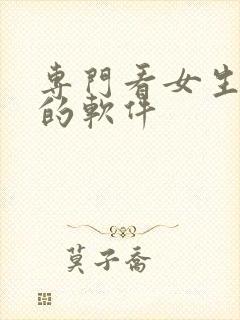 專門看女生
的軟件
莫子喬